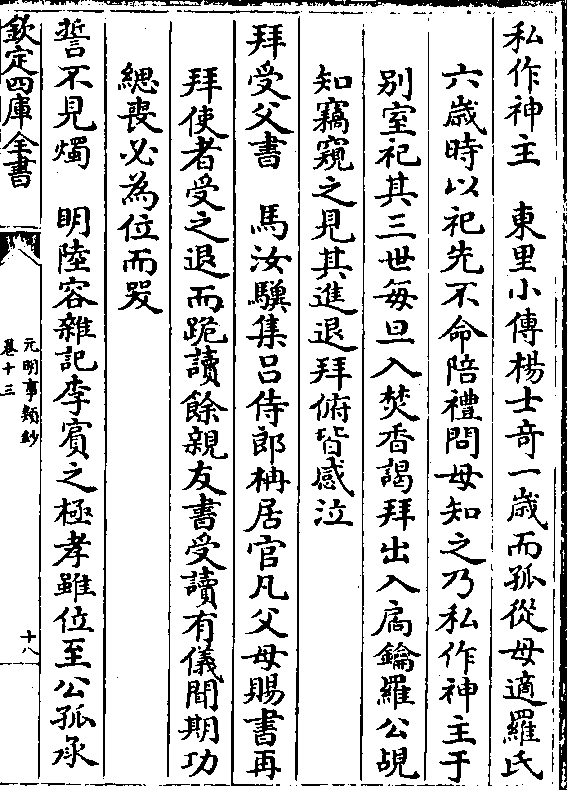 私作神主　東里小傳楊士奇一歳而孤從母適羅氏
六歳時以祀先不命陪禮問母知之乃私作神主于
別室祀其三世每旦入焚香謁拜出入扃鑰羅公覘
知竊窺之見其進退拜俯皆感泣
拜受父書　馬汝驥集吕侍郎柟居官凡父母賜書再
拜使者受之退而跪讀餘親友書受讀有儀聞期功
緦喪必為位而哭
誓不見燭　明陸容雜記李賓之極孝雖位至公孤承
欽定四庫全書
元明事類鈔
卷十三
十八